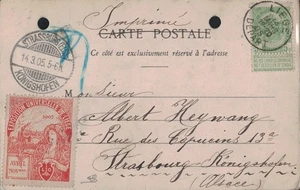 Imprimé
CARTE POSTALE
Ce côté est exclusivement réservé à l'adresse
STRASSBURG
14.3.05. 5-6
KÖNIGSHOFEN
Monsieur
Albert Heywang
Rue des Capucins 13a
Strasbourg-Königshofen
(Alsace)
EXPOSITION UNIVERSELLE
1905